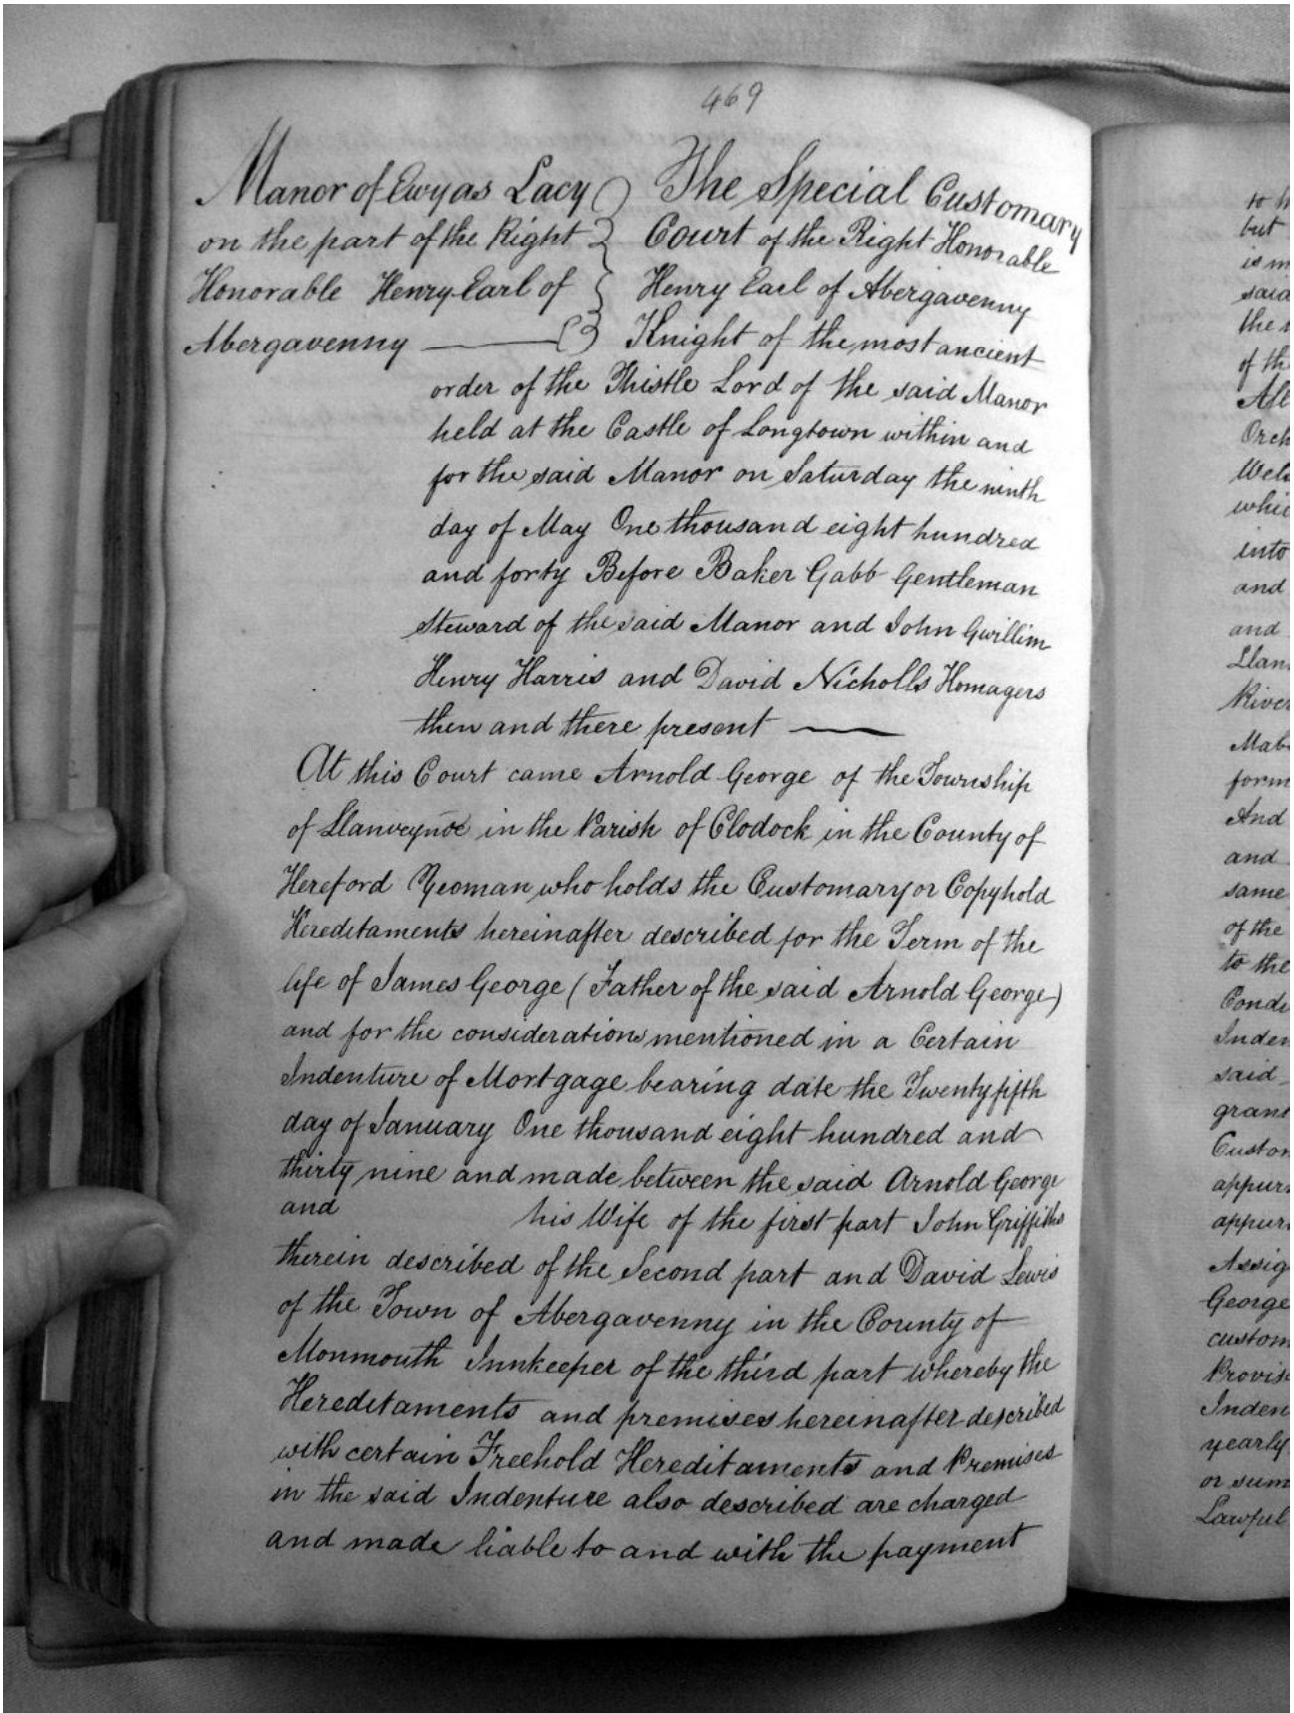 469
Manor of Ewyas Lacy
on the part of the Right
Honorable Henry Earl of
Abergavenny
The Special Customary
Court of the Right Honorable
Henry Earl of Abergavenny
Knight of the most ancient
order of the Thistle Lord of the said Manor
held at the Castle of Longtown within and
for the said Manor on Saturday the ninth
day of May One thousand eight hundred
and forty Before Baker Gabb Gentleman
Steward of the said Manor and John Gwillim
Henry Harris and David Nicholls Homagers
then and there present
At this Court came Arnold George of the Township
of Llanveynoe in the Parish of Clodock in the County of
Hereford Yeoman who holds the Customary or Copyhold
Hereditaments hereinafter described for the Term of the
life of James George (Father of the said Arnold George)
and for the considerations mentioned in a Certain
Indenture of Mortgage bearing date the Twenty fifth
day of January One thousand eight hundred and
thirty nine and made between the said Arnold George
and his Wife of the first part John Griffiths
therein described of the Second part and David Lewis
of the Town of Abergavenny in the County of
Monmouth Innkeeper of the third part whereby the
Hereditaments and premises hereinafter described
with certain Freehold Hereditaments and Premises
in the said Indenture also described are charged
and made liable to and with the payment
but
said
of the
into
and
and
And
and
same
of the
to the
said
George
yearly
Lawful